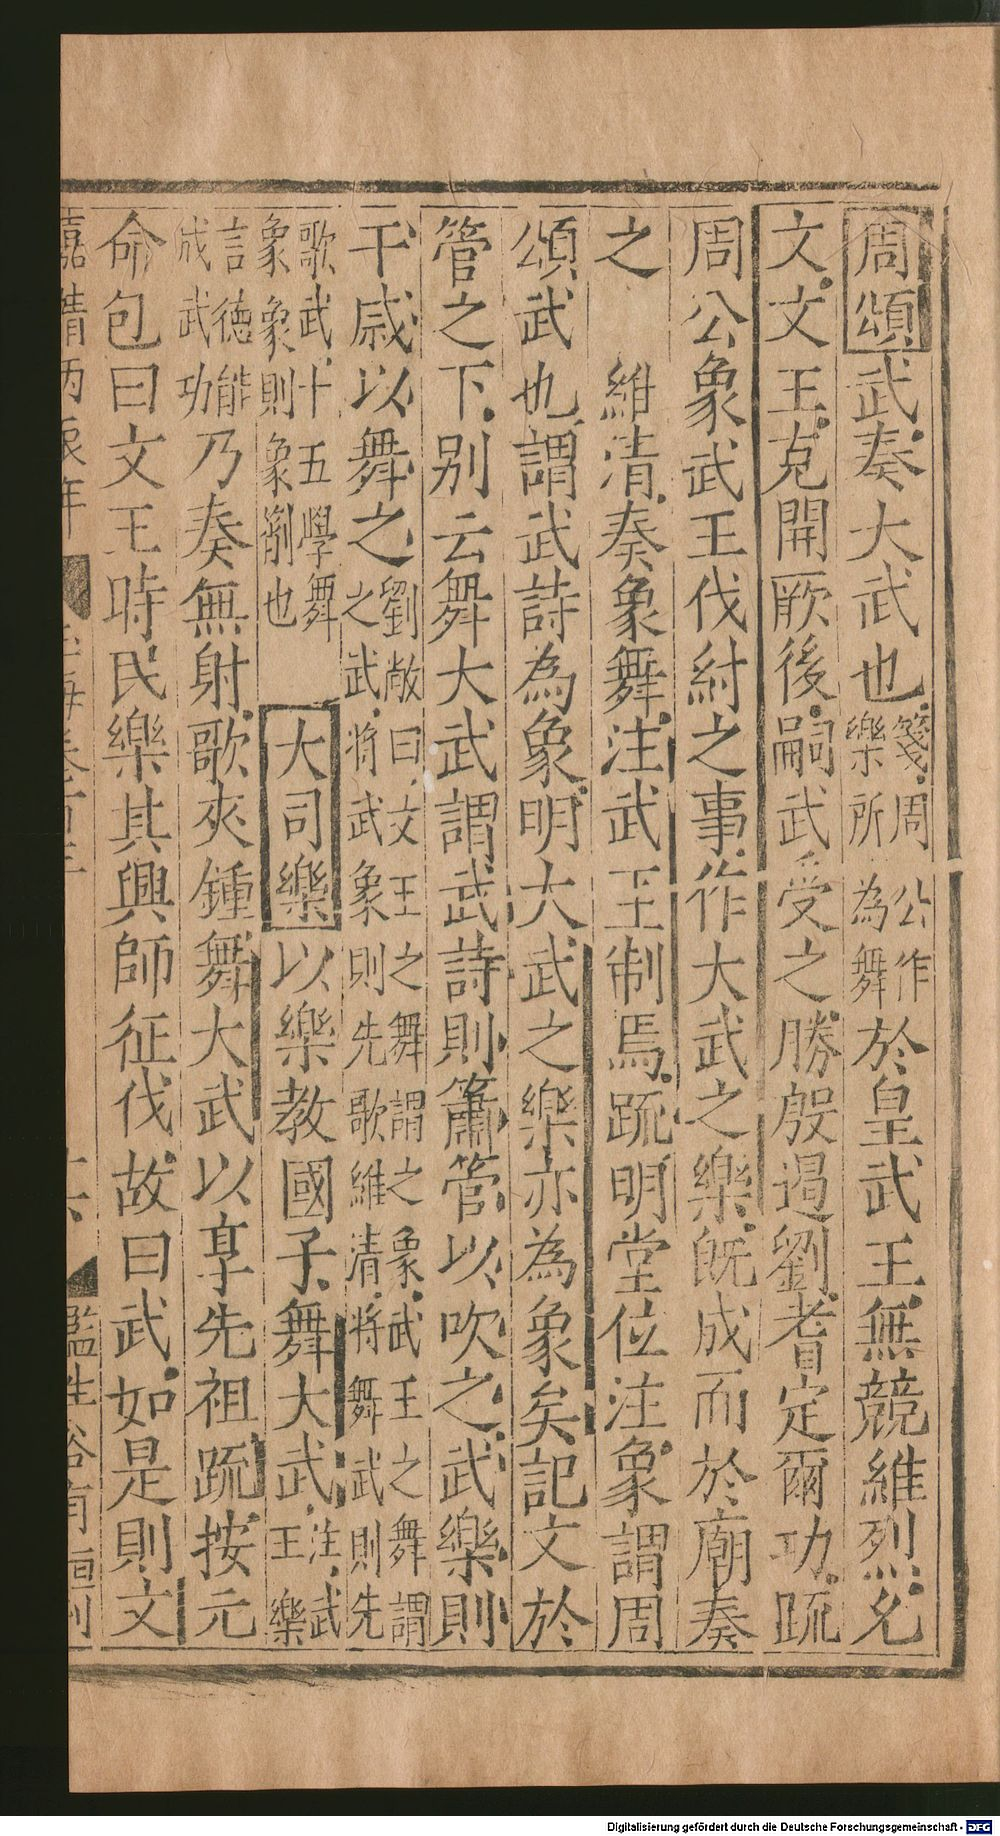 周頌武奏大武也箋周公作樂所為舞於皇武王無競維烈允
文文王克開厥後嗣武受之勝殷遏劉耆定爾功疏
周公象武王伐紂之事作大武之樂既成而於廟奏
之　維清奏象舞注武王制焉疏明堂位注象謂周
頌武也謂武詩為象明大武之樂亦為象矣記文於
管之下別云舞大武謂武詩則簫管以吹之武樂則
干戚以舞之劉敞曰文王之舞謂之象武王之舞謂之武將武象則先歌維清將舞武則先
歌武十五學舞象象則象箾也　大司樂以樂教國子舞大武注武王樂
言德能成武功乃奏無射歌夾鍾舞大武以享先祖疏按元
命包曰文王時民樂其興師征伐故曰武如是則文
嘉靖丙辰年　玉海卷百三　十六　監生谷有恒刊
Digitalisierung gefördert durch die Deutsche Forschungsgemeinschaft - DFG